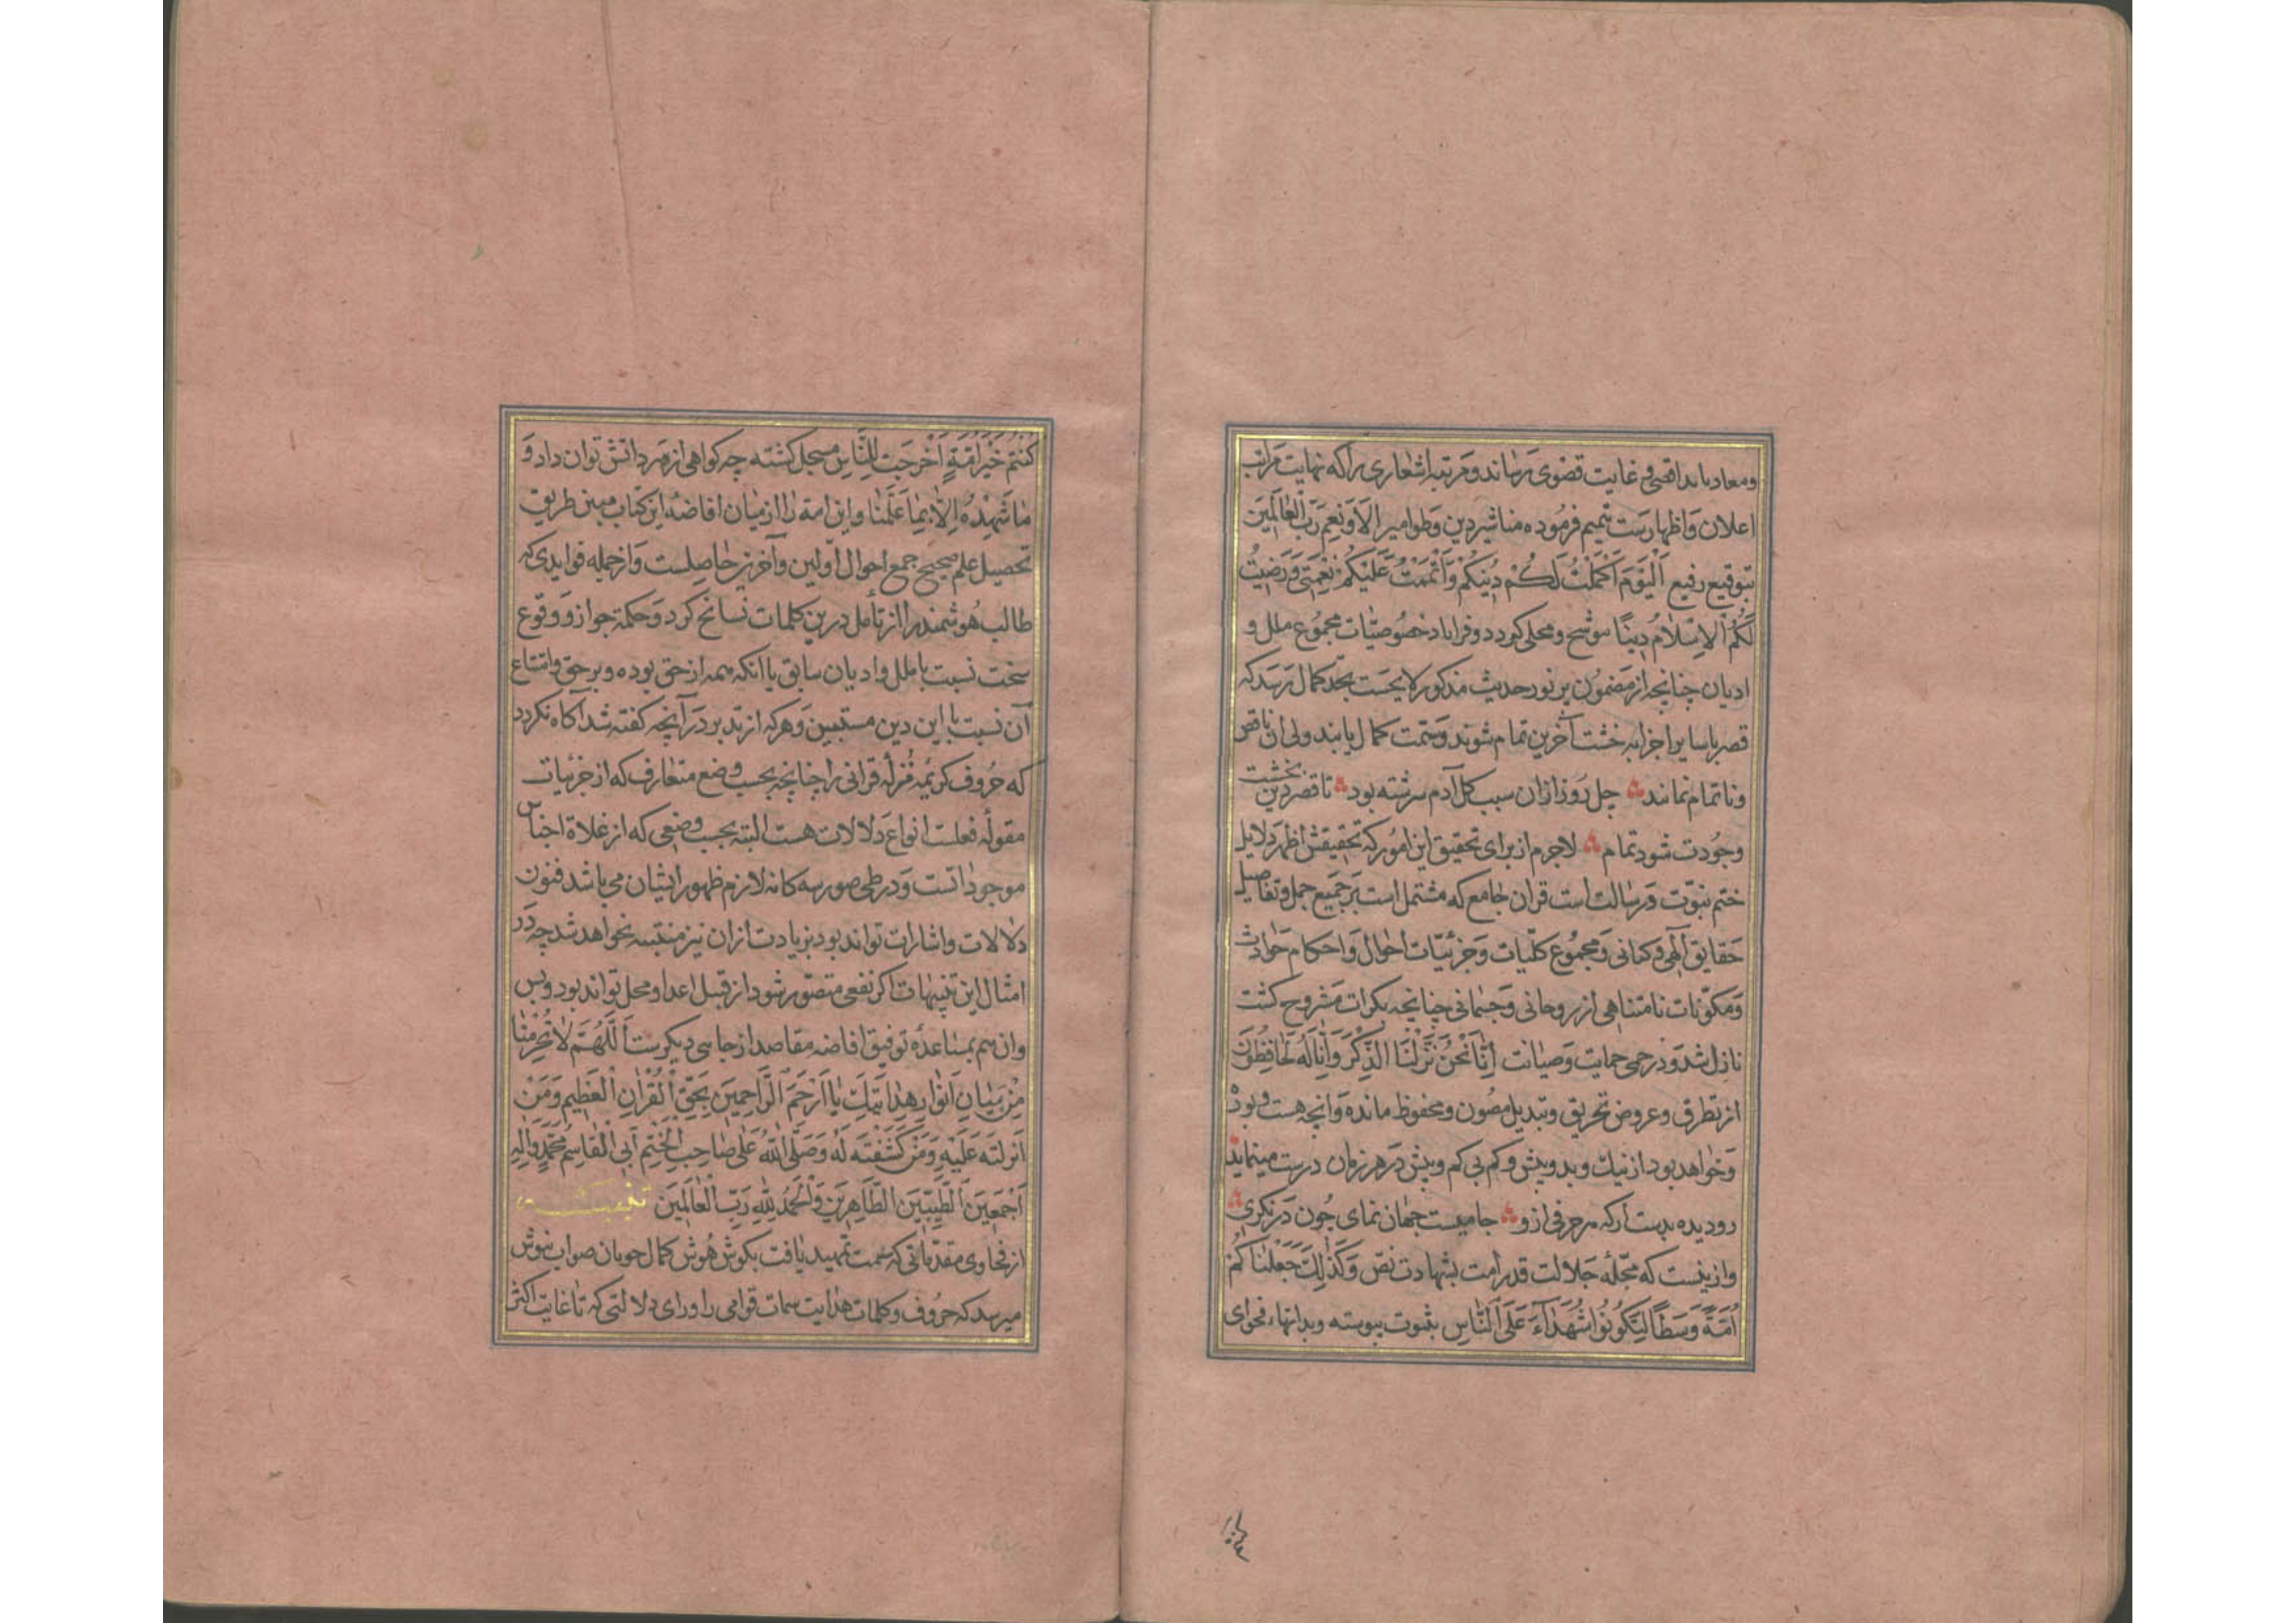 ومعاد باید اقصی و غایت قضوی رساند و مرتبه اشعاری را که نهایت مراتب
اعلان و اظهارست تتمیم فرموده مناشیر دین و طوامیر الآء و نعم رب العالمین
بتوقیع رفیع اَلْیَوْمَ اَکْمَلْتُ لَکُمْ دِینَکُمْ وَاَتْمَمْتُ عَلَیْکُمْ نِعْمَتی وَرَضیتُ
لَکُمُ الْاِسْلامَ دینًا موشح و محلی کردد و فراباد خصوصیّات مجموع ملل و
ادیان چنانچه از مضمون پر نور حدیث مذکور لایحست بحد کمال رسد که
قصر با سایر اجزا به خشت آخرین تمام شوند و حتمت کمال یابند ولی آن ناقص
و ناتمام نمانند چل روز ازان سبب کل آدم سرشته بود تا قصر دین بخشت
وجودت شود تمام لاجرم از برای تحقیق این امور که تحقیقش اظهر دلایل
ختم نبوّت و رسالت است قران جامع که مشتمل است بر جمیع جمل و تفاصیل
حقایق الهی و کیانی و مجموع کلّیات و جزئیّات احوال و احکام حوادث
و مکوّنات نامتناهی از روحانی و جسمانی چنانچه بکرات مشروح کشت
نازل شد و در حمی حمایت و صیانت اِنّا نَحْنُ نَزَّلْنَا الذِّکْرَ وَاِنّا لَهُ لَحافِظُونَ
از تطرق و عروض تحریق و تبدیل مصون و محفوظ مانده و انچه هست و بوده
و خواهد بود از نیك و بد و بیش و کم بی کم و بیش در هر زمان درست مینماید
رو دیده بدست ار که هر حرفی از و جامیست جهان نمای چون در نکری
و ازینست که مجله جلالت قدر امت بشهادت نص وَکَذلِكَ جَعَلْناکُمْ
اُمَّةً وَسَطًا لِتَکُونُوا شُهَداءَ عَلَی النّاسِ بثبوت پیوسته و بدانها، فحوای
کُنْتُمْ خَیْرَ اُمَّةٍ اُخْرِجَتْ لِلنّاسِ مسجل کشته چه کواهی از سر دانش توان داد و
ما شَهِدْنا اِلّا بِما عَلِمْنا و این امة را از میان افاضهٔ این کتاب مبین طریق
تحصیل علم صحیح جمع احوال اولین و آخرین حاصلست و از جمله فوایدی که
طالب هوشمند را از تأمل درین کلمات نسانح کرد و حکمة جواز و وقوع
سخت نسبت با ملل و ادیان سابق با آنکه همه از حق بوده و بر حق و امتناع
آن نسبت با این دین مستبین و هرکه از تدبر در آنچه کفته شد آکاه نکردد
که حروف کریمهٔ منزله قرانی را چنانچه بحسب وضع متعارف که از جزئیات
مقولهٔ فعلست انواع دلالات هست البته بحسب وضعی که از اجناس
موجوداتست و در طی صور سه کانه لازم ظهور ایشان می باشد فنون
دلالات و اشارات تواند بود بزیادت ازان نیز منتبه نخواهد شد چه در
امثال این تنبیهات اکر نفعی متصوّر شود از قبل اعداد محل تواند بود و بس
و ان هم بمساعدهٔ توفیق افاضه مقاصد از جاسی دیکرست اَللّهُمَّ لا تَحْرِمْنا
مِنْ مَیامِنِ اَنْوارِ هِدایَتِكَ یا اَرْحَمَ الرّاحِمینَ بِحَقِّ الْقُرْانِ الْعَظیمِ وَمَنْ
اَنْزَلْتَه عَلَیْهِ وَمَنْ کَشَفْتَه لَهُ وَصَلَّی اللهُ عَلی صاحِبِ الْخَتْمِ اَبِی الْقاسِمِ مُحَمَّدٍ وَالِه
اَجْمَعینَ الطَّیِّبینَ الطّاهِرینَ وَالْحَمْدُ لِلّهِ رَبِّ الْعالَمینَ
از فحاوی مقدماتی که سمت تمهید یافت بکوش هوش کمال جویان صواب نیوش
میرسد که حروف و کلمات هدایت سمات قوامی را ورای دلالتی که تا غایت اکثر